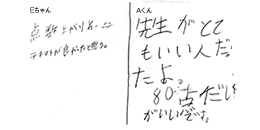 Eちゃん
点数上がりました
テキストが良かったと思う。
Aくん
先生がとて
もいい人だっ
たよ。
80点だい
がいいぞ。